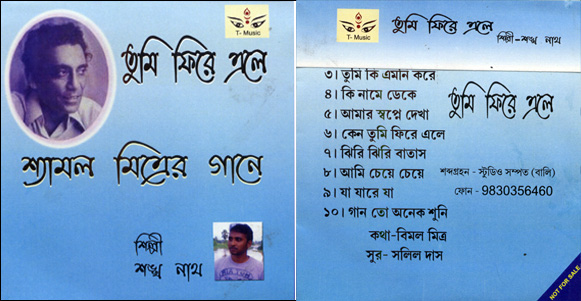 T- Music
তুমি ফিরে এলে
শ্যামল মিত্রের গানে
শিল্পী
শঙ্খ নাথ
T- Music
তুমি ফিরে এলে
শিল্পী -শঙ্খ নাথ
৩। তুমি কি এমান করে
৪। কি নামে ডেকে
৫। আমার স্বপ্নে দেখা
তুমি ফিরে এলে
৬। কেন তুমি ফিরে এলে
৭। ঝিরি ঝিরি বাতাস
৮। আমি চেয়ে চেয়ে
শব্দগ্রহন - স্টুডিও সম্পত (বালি)
৯। যা যারে যা
ফোন - 9830356460
১০। গান তো অনেক শুনি
কথা-বিমল মিত্র
সুর- সলিল দাস
NOT FOR SALE